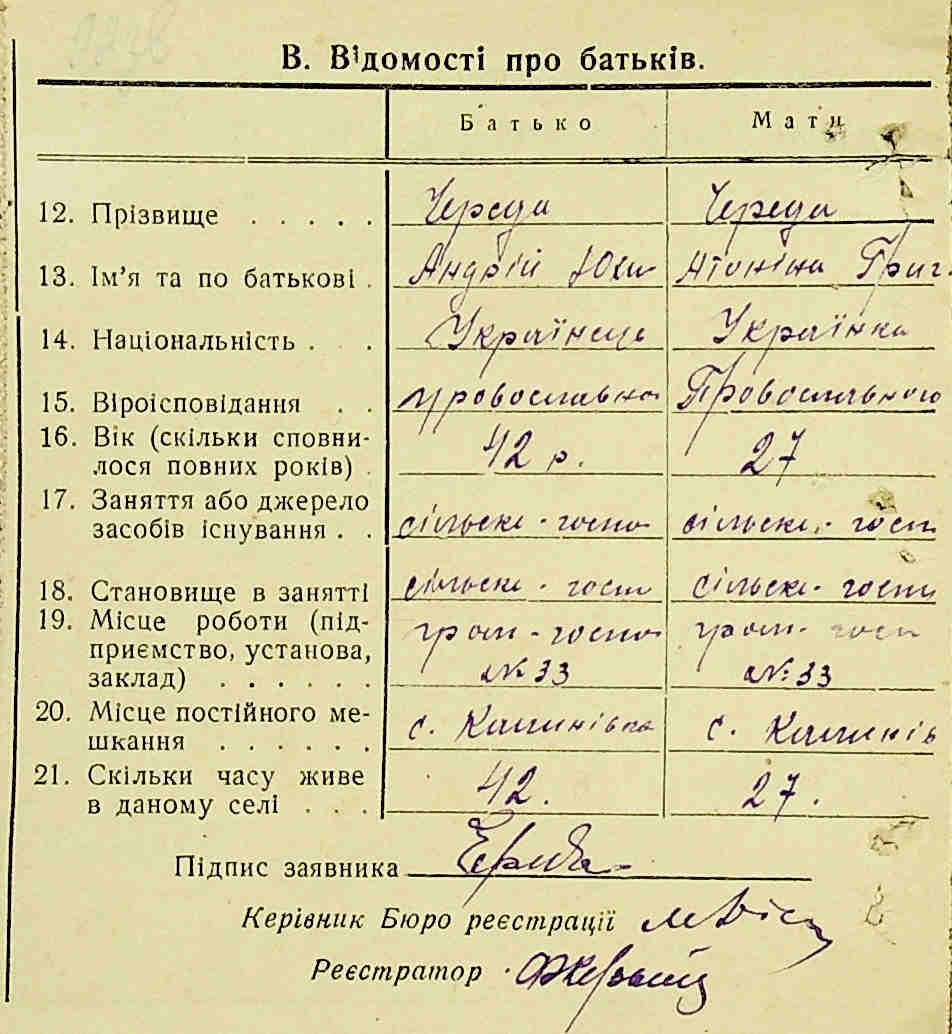 В. Відомості про батьків.
Батько Мати
12. Прізвище . . . . . Череда Череда
13. Ім'я та по батькові . Андрій Юхи Нтоніна Григ.
14. Національність . . . Українець Українка
15. Віроісповідання . . провославна Провославного
16. Вік (скільки сповни-
лося повних років) . 42 р. 27
17. Заняття або джерело
засобів існування . . сільске-госпо сільске-госп
18. Становище в занятті сільске-госп сільске-госп
19. Місце роботи (під- гром-госпо гром-госп
приємство, установа,
заклад) . . . . . . №33 №33
20. Місце постійного ме- с. Калинівка с. Калинів
шкання . . . . . .
21. Скільки часу живе
в даному селі . . . 42. 27.
Підпис заявника
Керівник Бюро реєстрації
Реєстратор